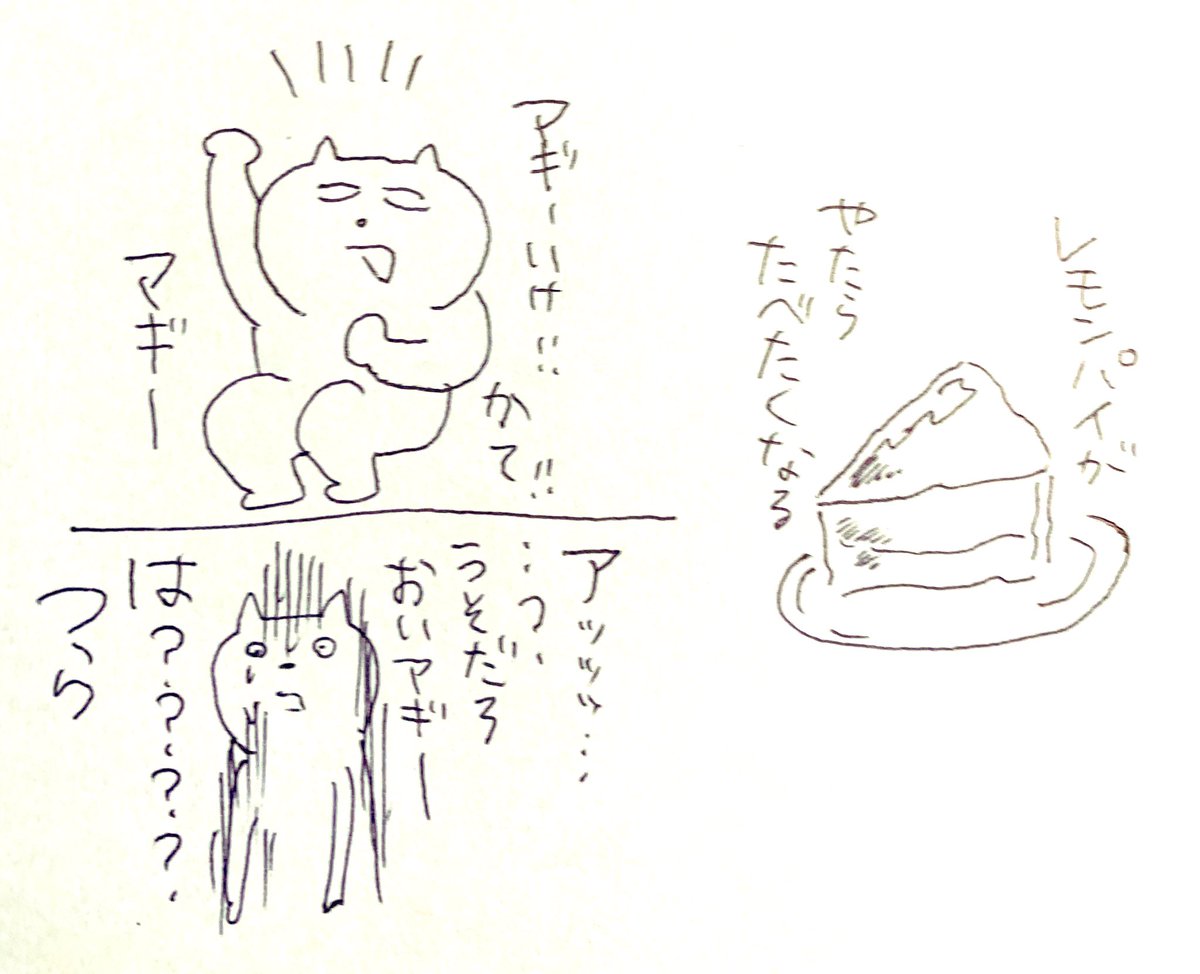 レモンパイが
やたら
たべたくなる
マギーいけ!!
かて!!
マギー
アッッッ…
…?
うそだろ
おいマギー
は????
つら